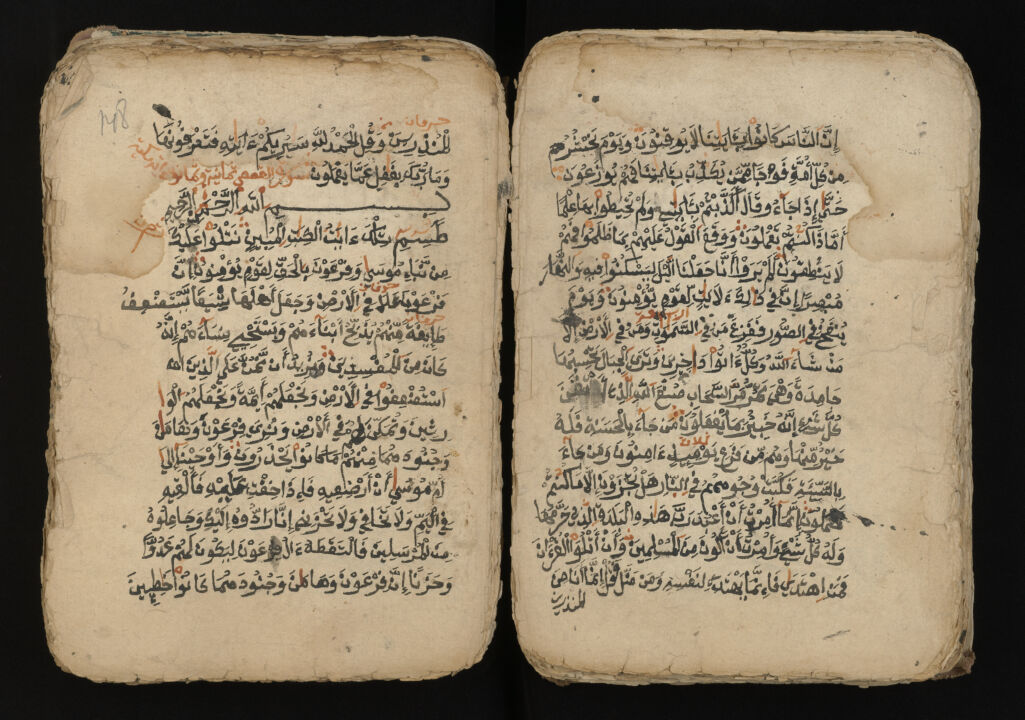 إن الناس كانوا بئايتنا لا يوقنون ويوم نحشر
من كل أمة فوجا ممن يكذب بئايتنا فهم يوزعون
حتى إذا جاءو قال أكذبتم بئايتي ولم تحيطوا بها علما
أماذا كنتم تعملون ووقع القول عليهم بما ظلموا فهم
لا ينطقون ألم يروا أنا جعلنا اليل ليسكنوا فيه والنهار
مبصرا إن في ذلك لأيت لقوم يؤمنون ويوم
ينفخ في الصور ففزع من في السموت ومن في الأرض إلا
من شاء الله وكل ءاتوه داخرين وترى الجبال تحسبها
جامدة وهي تمر مر السحاب صنع الله الذي أتقن
كل شيء إنه خبير بما تفعلون من جاء بالحسنة فله
خير منها وهم من فزع يومئذ ءامنون ومن جاء
بالسيئة فكبت وجوههم في النار هل تجزون إلا ما كنتم
تعملون إنما أمرت أن أعبد رب هذه البلدة الذي حرمها
وله كل شيء وأمرت أن أكون من المسلمين وأن أتلوا القرءان
فمن اهتدى فإنما يهتدي لنفسه ومن ضل فقل إنما أنا من
المنذرين
المنذرين وقل الحمد لله سيريكم ءايته فتعرفونها
وما ربك بغفل عما يعملون سورة القصص ثمانية وثمانون
بسم الله الرحمن الرحيم
طسم تلك ءايت الكتب المبين نتلوا عليك
من نبإ موسى وفرعون بالحق لقوم يؤمنون إن
فرعون علا في الأرض وجعل أهلها شيعا يستضعف
طائفة منهم يذبح أبناءهم ويستحي نساءهم إنه
كان من المفسدين ونريد أن نمن على الذين
استضعفوا في الأرض ونجعلهم أئمة ونجعلهم الوا
رثين ونمكن لهم في الأرض ونري فرعون وهامن
وجنودهما منهم ما كانوا يحذرون وأوحينا إلى
أم موسى أن أرضعيه فإذا خفت عليه فألقيه
في اليم ولا تخافي ولا تحزني إنا رادوه إليك وجاعلوه
من المرسلين فالتقطه ءال فرعون ليكون لهم عدوا
وحزنا إن فرعون وهامن وجنودهما كانوا خطين